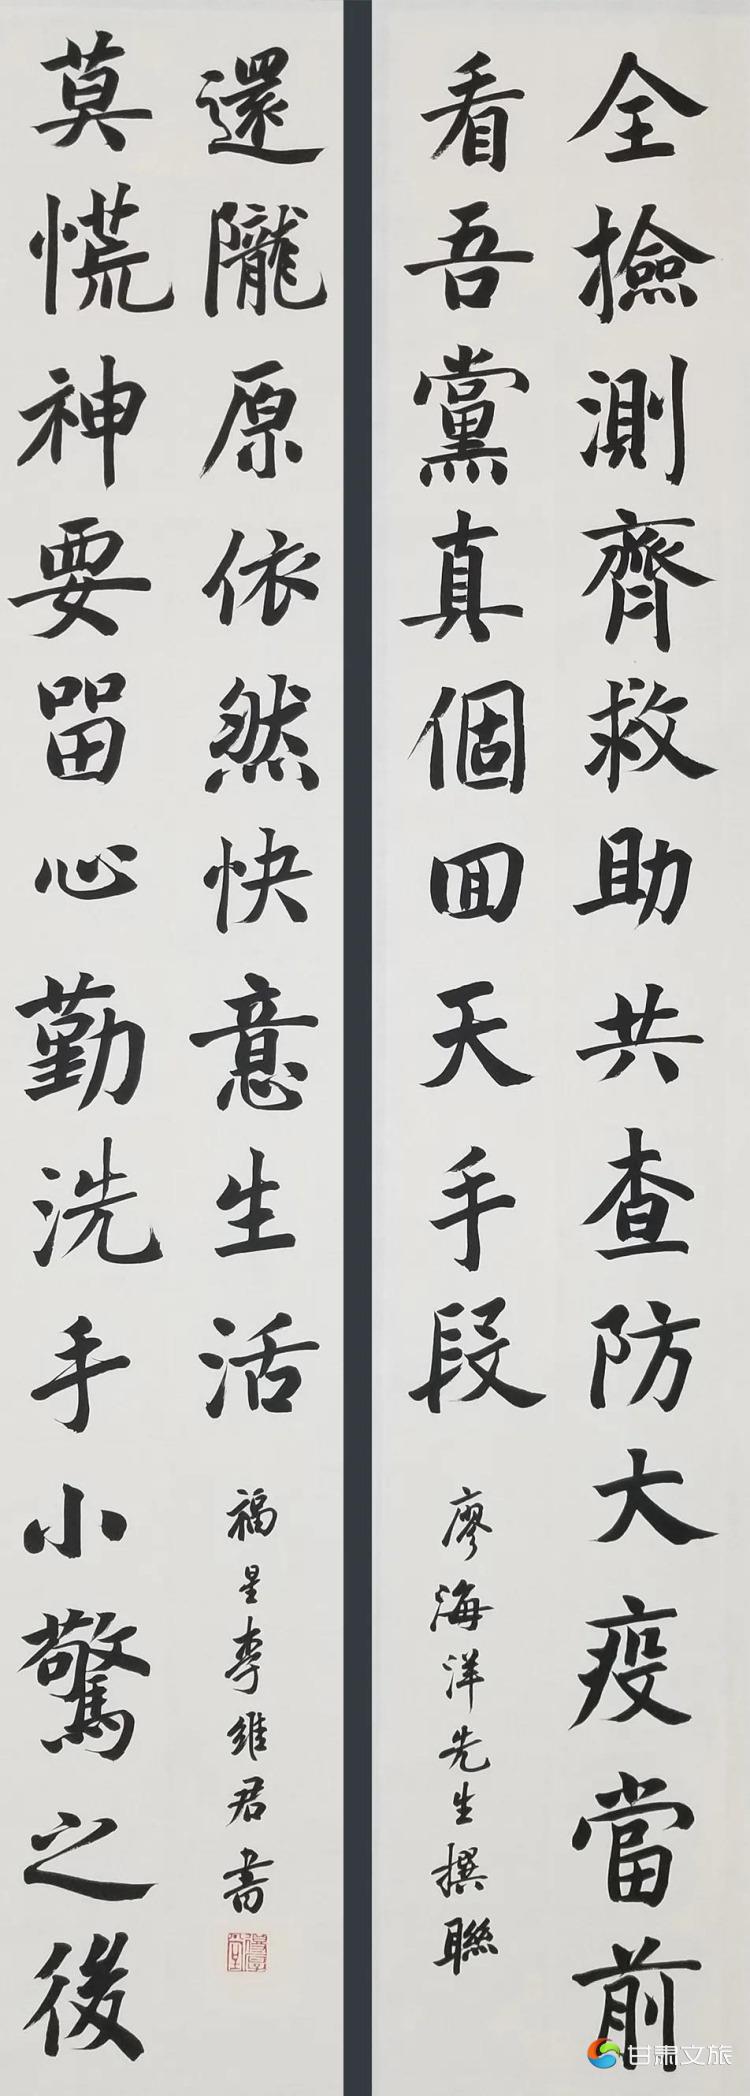 全撿測齊救助共查防大疫當前
看吾黨真個囬天手段
廖海洋先生撰聯
莫慌神要㽞心勤洗手小驚之後
還隴原依然快意生活
福星李維君書
甘肃文旅